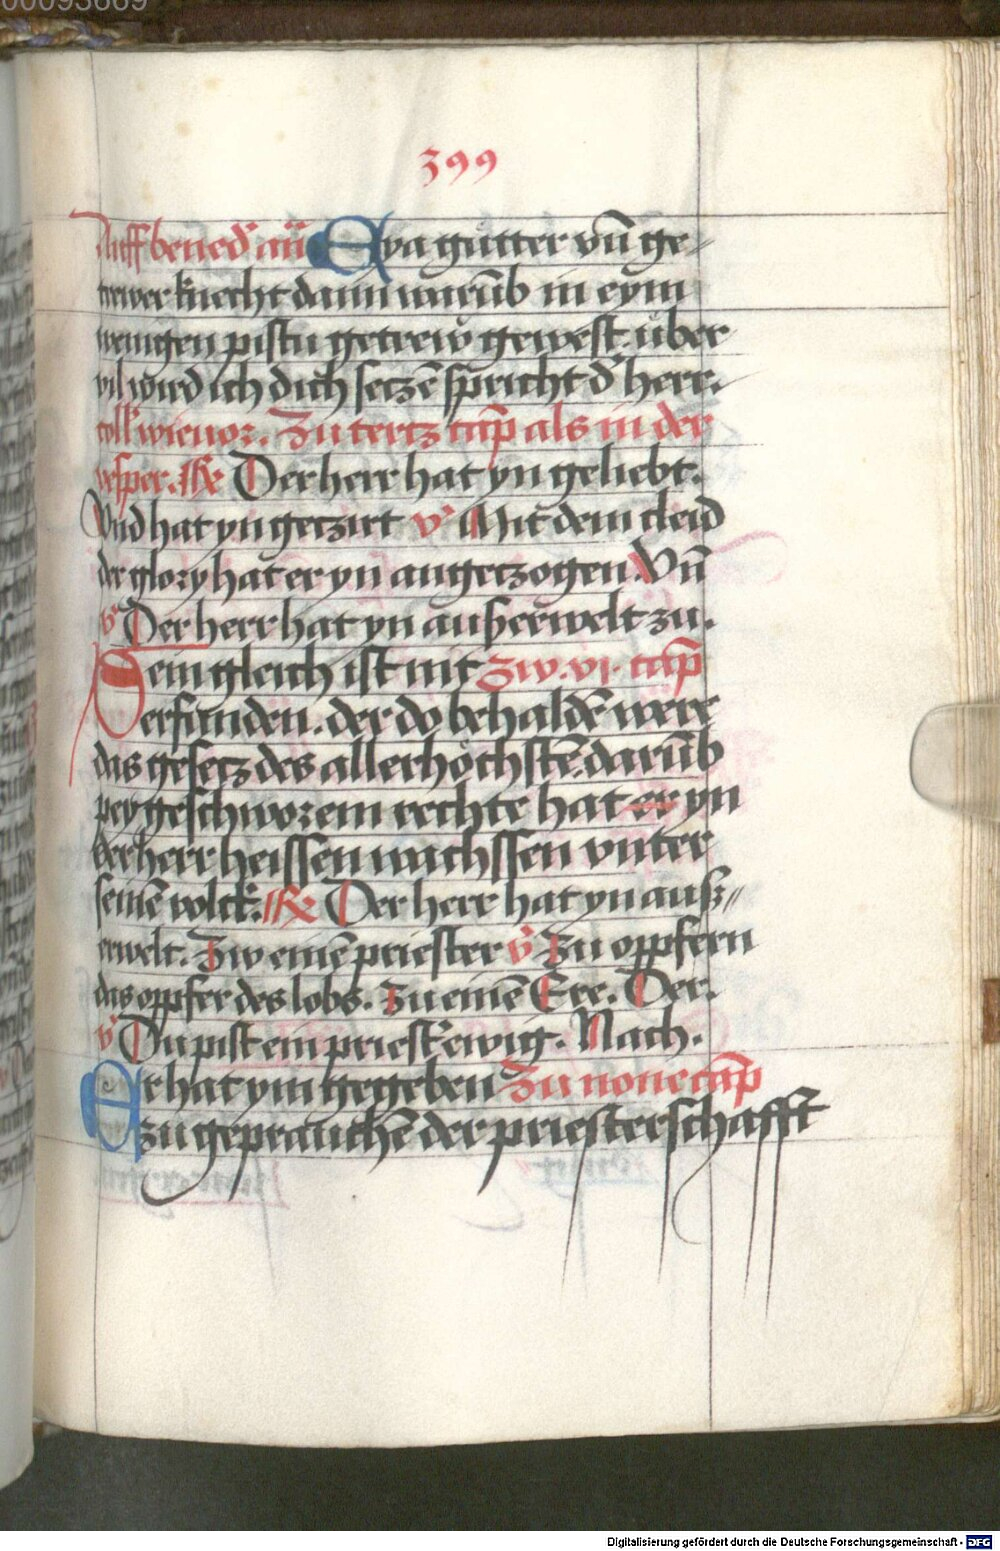 00093669
399
Auff bened an̄ Eya gůtter vn̄ ge-
trewer knecht dann warūb in eym
wenigen pistu getrew gewest. über
vil wird ich dich setzē spricht d' herr.
coll' wie vor. Zu tertz cap̄ als in der
vesper. Rx Der herr hat yn geliebt.
Vnd hat yn getzirt v' Mit dem cleid
der glory hat er yn angetzogen. Vn̄
v' Der herr hat yn außerwelt zu.
Sein gleich ist nit Zw. vi. cap̄
erfunden. der do behaldē were
das gesetz des allerhöchstē. darūb
pey geschworem rechte hat er yn
der herr heissen wachssen vnter
seinē volck. Rx Der herr hat yn auß-
erwelt. Zw einē priester v' Zu oppfern
das oppfer des lobs. Zu einē Ere. Der.
v' Du pist ein priest' ewig. Nach.
Er hat ym gegeben Zu none cap̄
zu geprauchē der priesterschafft
Digitalisierung gefördert durch die Deutsche Forschungsgemeinschaft - DFG